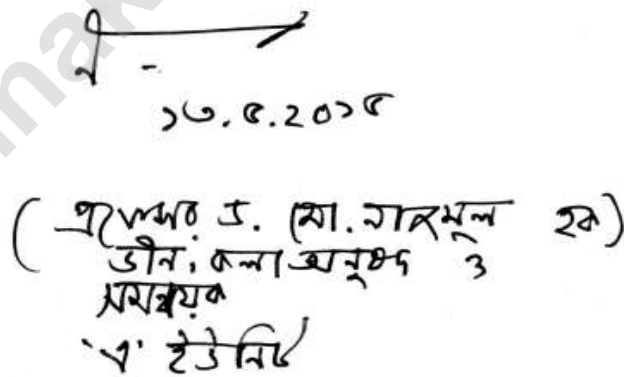 ১৩.৫.২০১৫
(প্রফেসর ড. মো. নাজমুল হক)
ডীন, কলা অনুষদ ও
সমন্বয়ক
'এ' ইউনিট